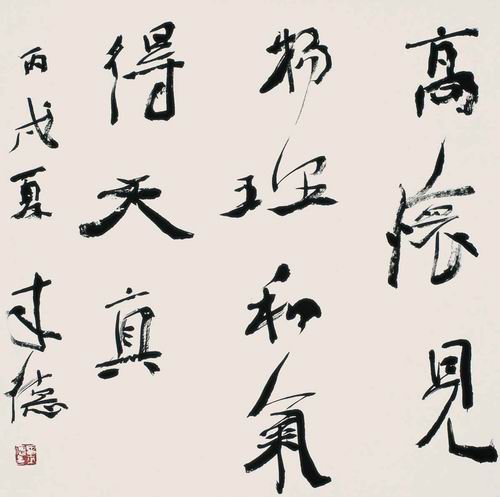 高懷見
物理和氣
得天真
丙戌夏